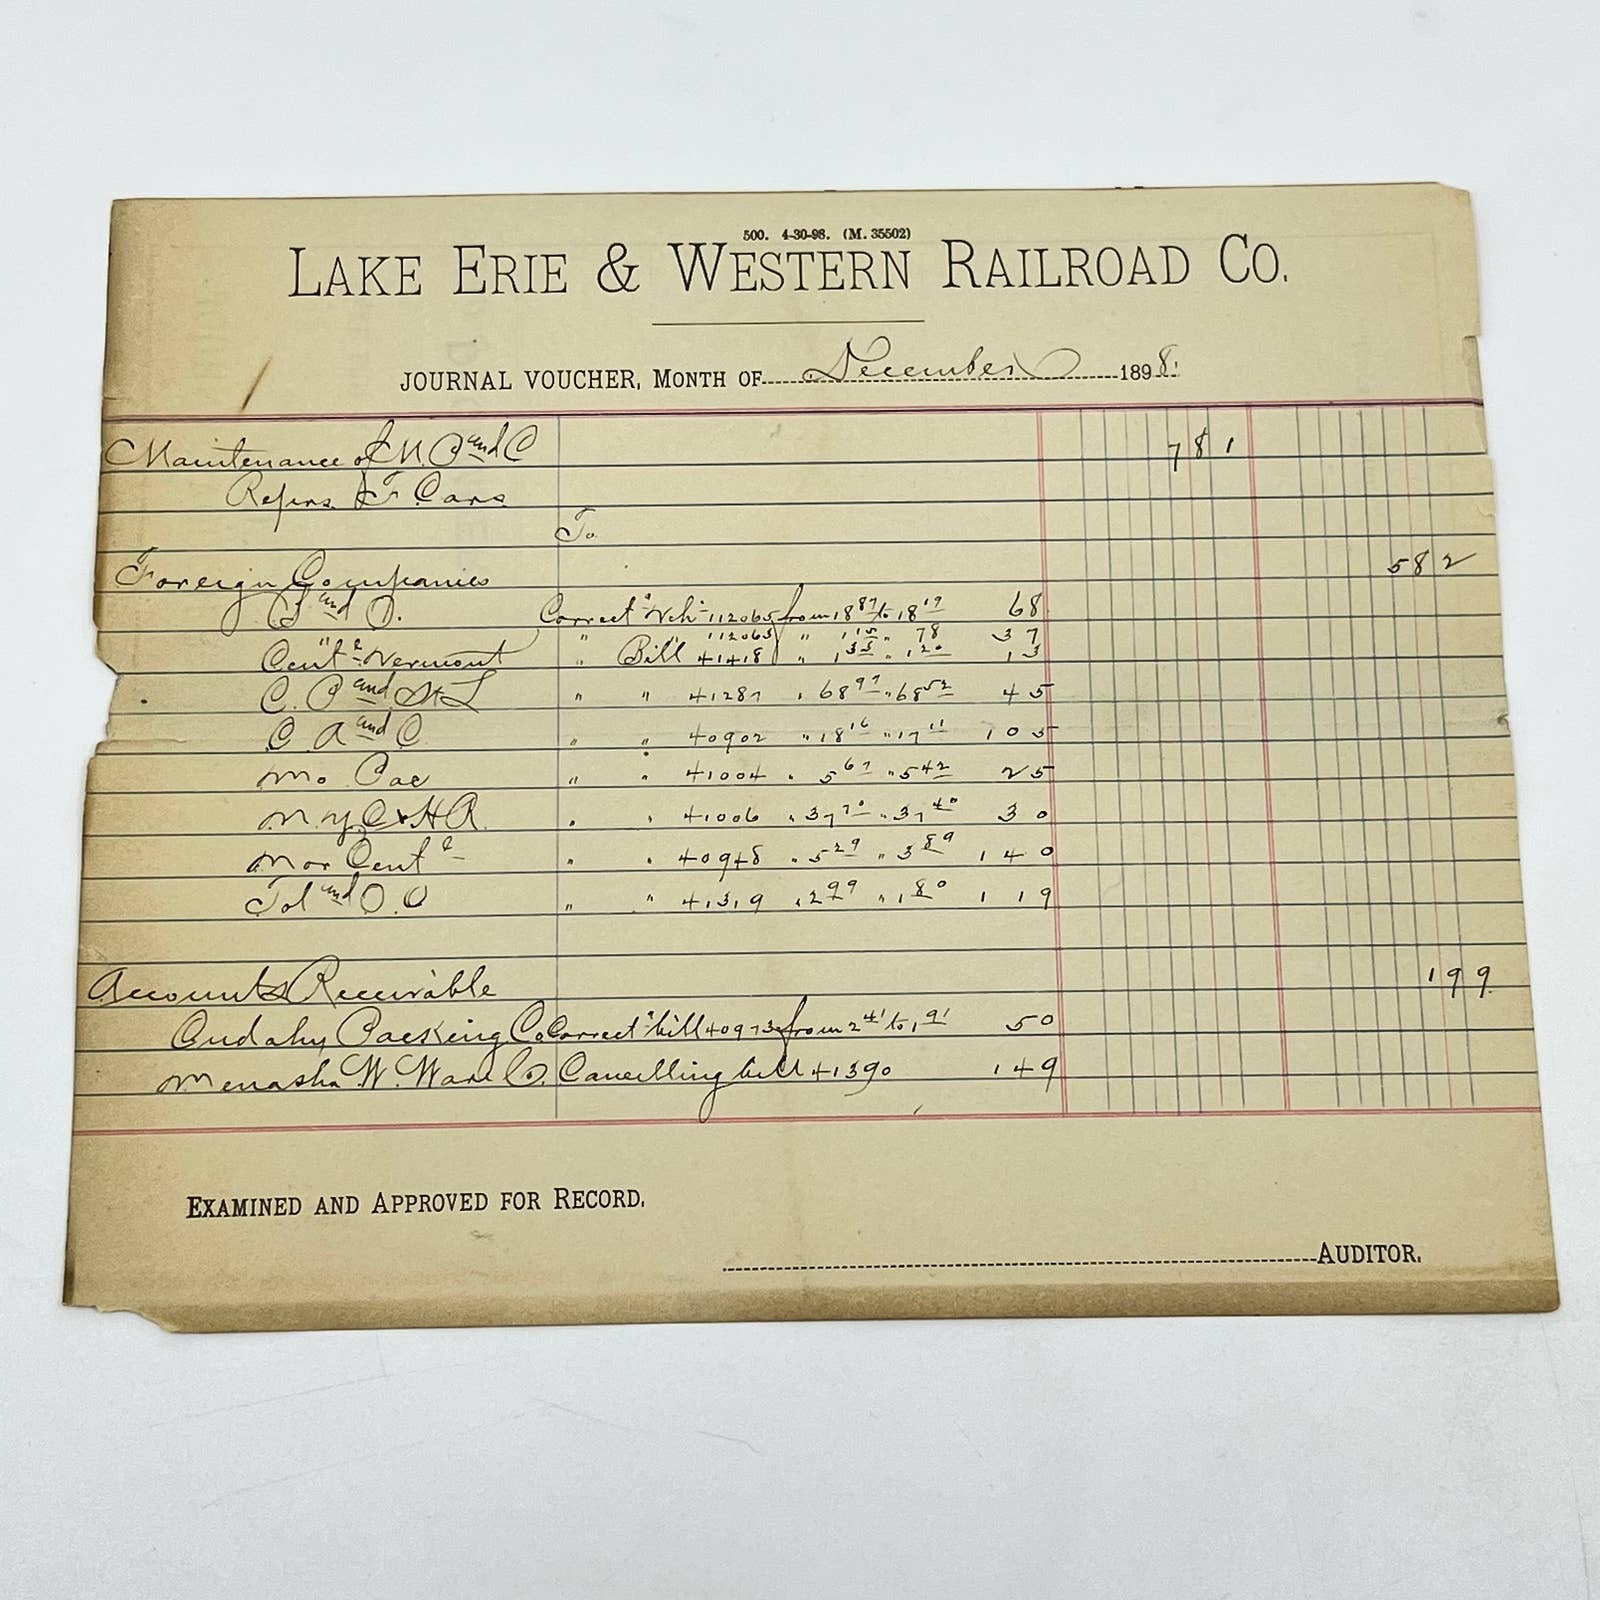 500. 4-30-98. (M. 35502)
LAKE ERIE & WESTERN RAILROAD CO.
JOURNAL VOUCHER, MONTH OF December 1898.
Maintenance of and C 781
Cars
To
Foreign Companies 582
and O. Correctg Vch 112065 from 18 87 to 18 19 68
" " 112065 " 1 15 " 78 37
Centl Vermont " Bill 41418 " 1 33 " 1 20 13
C. P and St L " " 41287 " 68 97 " 68 52 45
C A and C " " 40902 " 18 16 " 17 11 105
Mo Pac " " 41004 " 5 67 " 5 42 25
N. Y. C & H R. " " 41006 " 37 70 " 37 40 30
Centl " " 40948 " 5 29 " 3 89 140
Tol and O. C " " 41319 " 2 99 " 1 80 119
Accounts Receivable 199
Cudahy Packing Co Correctg bill 40973 from 2 41 to 1 91 50
Menasha W. Ware Co. Cancelling bill 41390 149
EXAMINED AND APPROVED FOR RECORD.
AUDITOR.